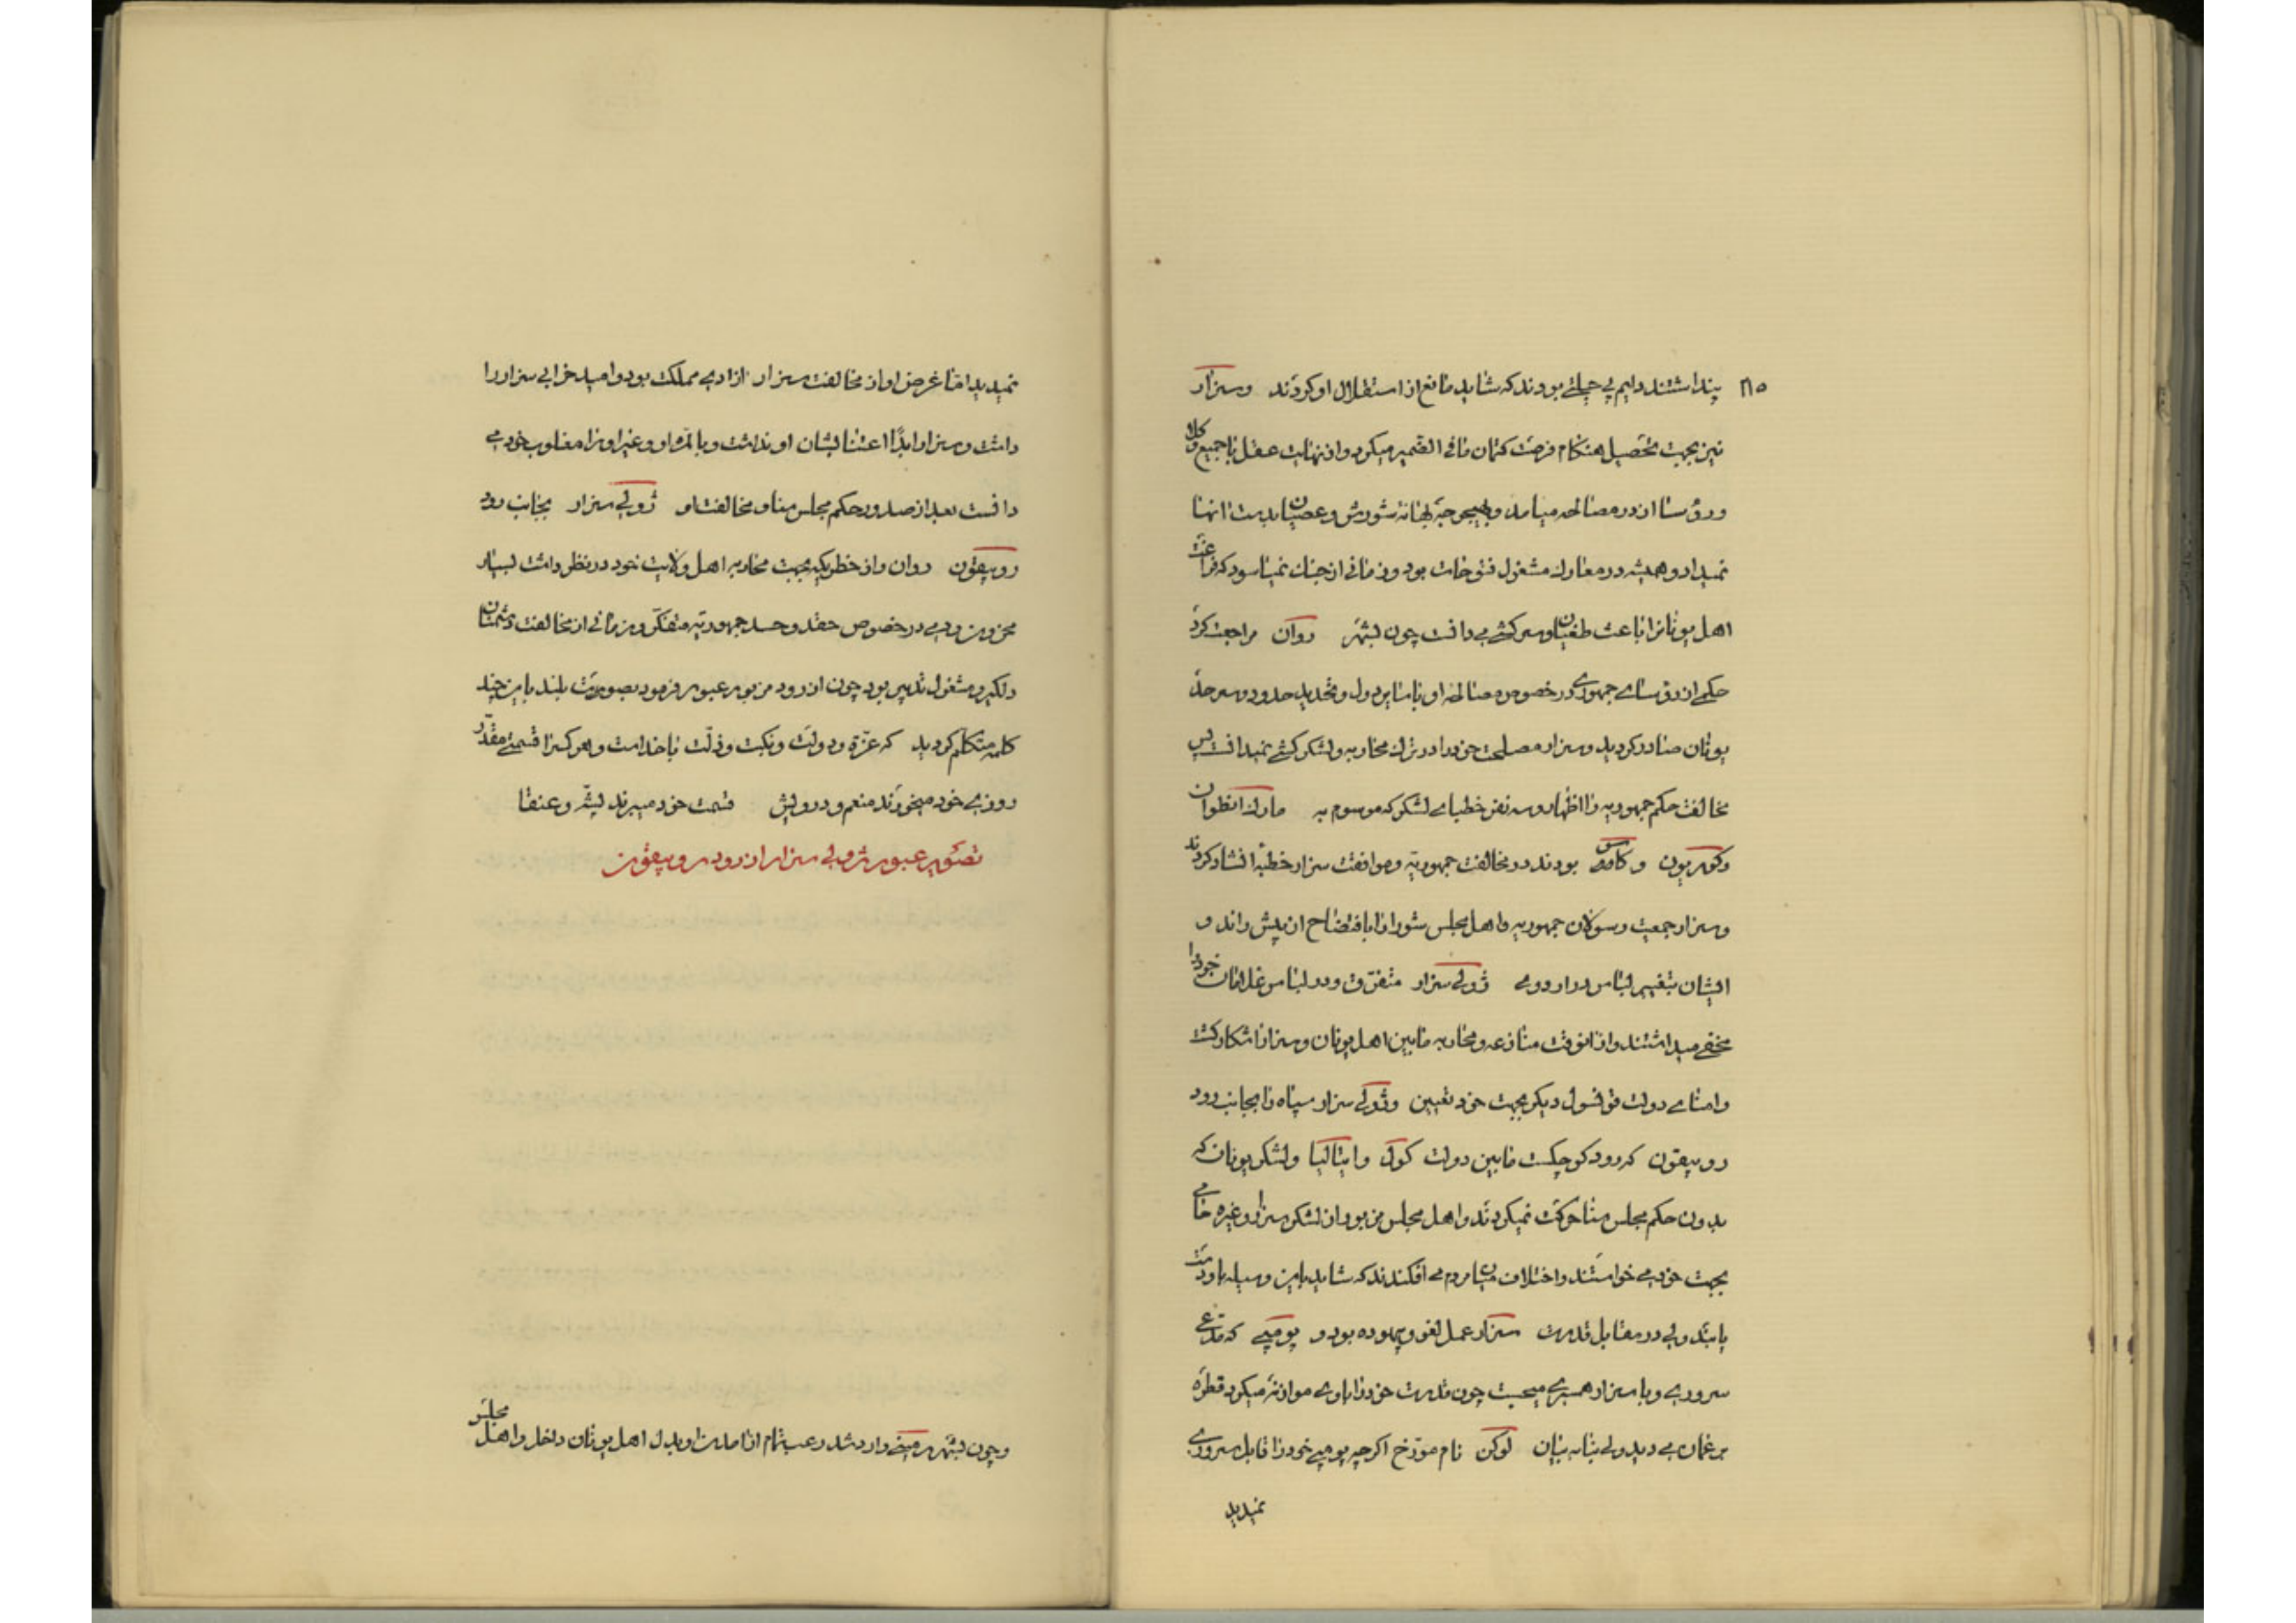 پنداشتند دایم پی حیلتی بودند که شاید مانع از استقلال او کردند وسزار
نیز بجهت تحصیل هنکام فرصت کتمان مافی الضمیر میکرد واز نهایت عقل با جمیع وکلا
ورؤسا از در مصالحه میامد وبهیچوجه بهانه شورش وعصیان بدست انها
نمیداد وهمیشه در معارک مشغول فتوحات بود وزمانی از جنک نمیاسود که فراغت
اهل یونانرا باعث طغیان وسرکشی می دانست چون بشهر روان مراجعت کرد
حکمی از رؤسای جمهوری در خصوص مصالحه او با سایر دول وتحدید حدود وسرحد
یونان صادر کردید وسزار مصلحت خودرا در ترک محاربه ولشکرکشی نمیدانست پس
مخالفت حکم جمهوریه را اظهار وسه نفر خطبای لشکر که موسوم به مارک انطوان
وکوریون و کاسوس بودند در مخالفت جمهوریه وموافقت سزار خطبه انشاد کردند
وسزار جمعیت رسولان جمهوریه واهل مجلس شورا را با افتضاح از پیش راند و
ایشان بتغییر لباس در اردوی ژولی سزار متفرق ودر لباس غلامان خودرا
مخفی میداشتند واز انوقت منازعه ومحاربه مابین اهل یونان وسزار اشکار کشت
وامنای دولت قونسول دیکر بجهت خود تعیین وژولی سزار سپاه را بجانب رود
روبیقون که رود کوچکیست مابین دولت کول وایتالیا ولشکر یونان که
بدون حکم مجلس سنا حرکت نمیکردند واهل مجلس مزبور از لشکر سزار وغیره حامی
بجهت خود می خواستند واختلاف میان مردم می افکندند که شاید باین وسیله باو دست
یابند ولی در مقابل قدرت سزار عمل لغو وبیهوده بود و پومپی که مدعی
سروری وبا سزار همسری میجست چون قدرت خودرا باوی موازنه میکرد قطره
بر عمان می دید ولی بنا به بیان لوکن نام مورخ اکرچه پومپی خودرا قابل سروری
نمیدید
نمیدید اما غرض او از مخالفت سزار ازادی مملکت بود وامید خرابی سزار را
داشت وسزار ابداً اعتنا بشان او نداشت وبالمره او وغیر اورا مغلوب خود می
دانست بعد از صدور حکم مجلس سنا ومخالفت او ژولی سزار بجانب رود
روبیقون روان واز خطریکه بجهت محاربه اهل ولایت خود در نظر داشت بسیار
محزون ودمی در خصوص حقد وحسد جمهوریه متفکر وزمانی از مخالفت دشمنان
دلکیر ومشغول تدبیر بود چون از رود مزبور عبور فرمود بصوت بلند باین چند
کلمه متکلم کردید که عزة ودولت ونکبت وذلت با خداست وهر کسرا قسمتی مقدر
روزی خود میخورند منعم ودرویش قسمت خود میبرند پشه وعنقا
تصویر عبور ژولی سزار از رود روبیقون
وچون بشهر رمینی وارد شد رعب تمام از اصارت او بدل اهل یونان داخل واهل مجلس